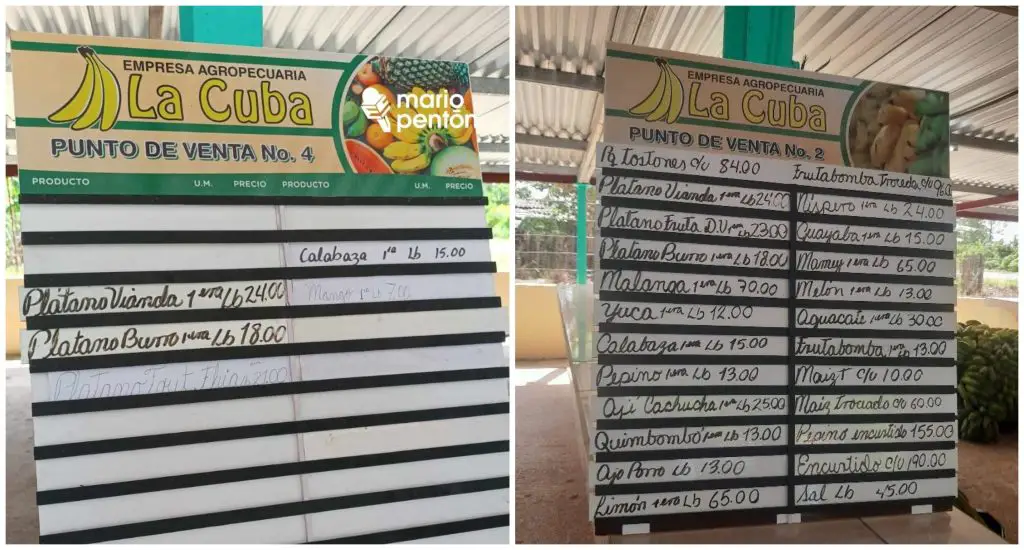 EMPRESA AGROPECUARIA
La Cuba
PUNTO DE VENTA No. 4
mario
pentón
PRODUCTO U.M. PRECIO PRODUCTO U.M. PRECIO
Calabaza 1ra Lb 15.00
Plátano Vianda 1era Lb 24.00
Mango 1ra Lb 7.00
Plátano Burro 1era Lb 18.00
Platano Frut
EMPRESA AGROPECUARIA
La Cuba
PUNTO DE VENTA No. 2
Pq Tostones c/u 84.00
Frutabomba Troceda c/u
Platano Vianda 1era Lb 24.00
Nispero 1era Lb 24.00
Platano Fruta D.U 1era Lb 23.00
Guayaba 1era Lb 15.00
Platano Burro 1era Lb 18.00
Mamey 1era Lb 65.00
Malanga 1era Lb 70.00
Melón 1era Lb 13.00
Yuca 1era Lb 12.00
Aguacate 1era Lb 30.00
Calabaza 1era Lb 15.00
Frutabomba 1era Lb 13.00
Pepino 1era Lb 13.00
Maiz T c/u 10.00
Ají Cachucha 1era Lb 25.00
Maiz Troceado c/u 60.00
Quimbombó 1era Lb 13.00
Pepino encurtido 155.00
Ajo Porro Lb 13.00
Encurtido c/u 190.00
Limón 1era Lb 65.00
Sal Lb 45.00